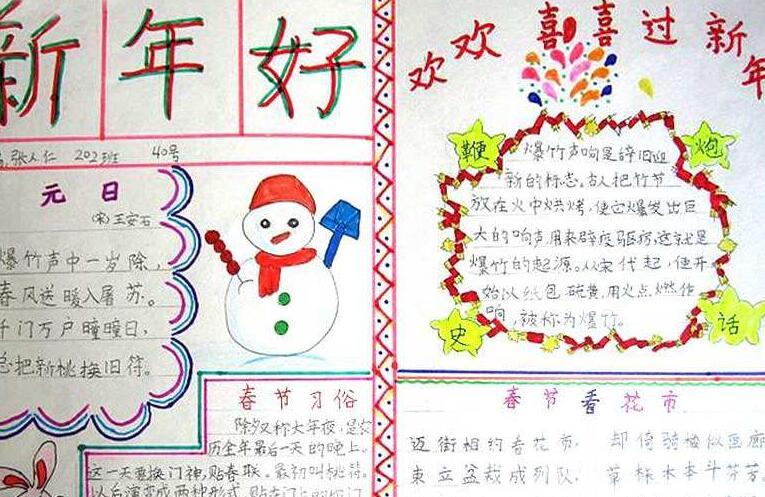 新年好
张人仁 202班 40号
元日
(宋)王安石
爆竹声中一岁除,
春风送暖入屠苏。
千门万户曈曈日,
总把新桃换旧符。
春节习俗
除夕又称大年夜,是农
历全年最后一天的晚上。
这一天要换门神,贴春联。最初叫桃符。
以后演变成两种形式,贴在门上的叫门
欢欢喜喜过新年
鞭炮史话
爆竹声响是辞旧迎
新的标志。古人把竹节
放在火中烘烤,使它爆发出巨
大的响声用来辟疫驱病,这就是
爆竹的起源。从宋代起,便开
始以纸包硫黄,用火点燃作
响,被称为爆竹。
春节看花市
迈街相约看花市,
却倚骑楼似画廊
束立盆栽成列队,
草株木本斗芬芳